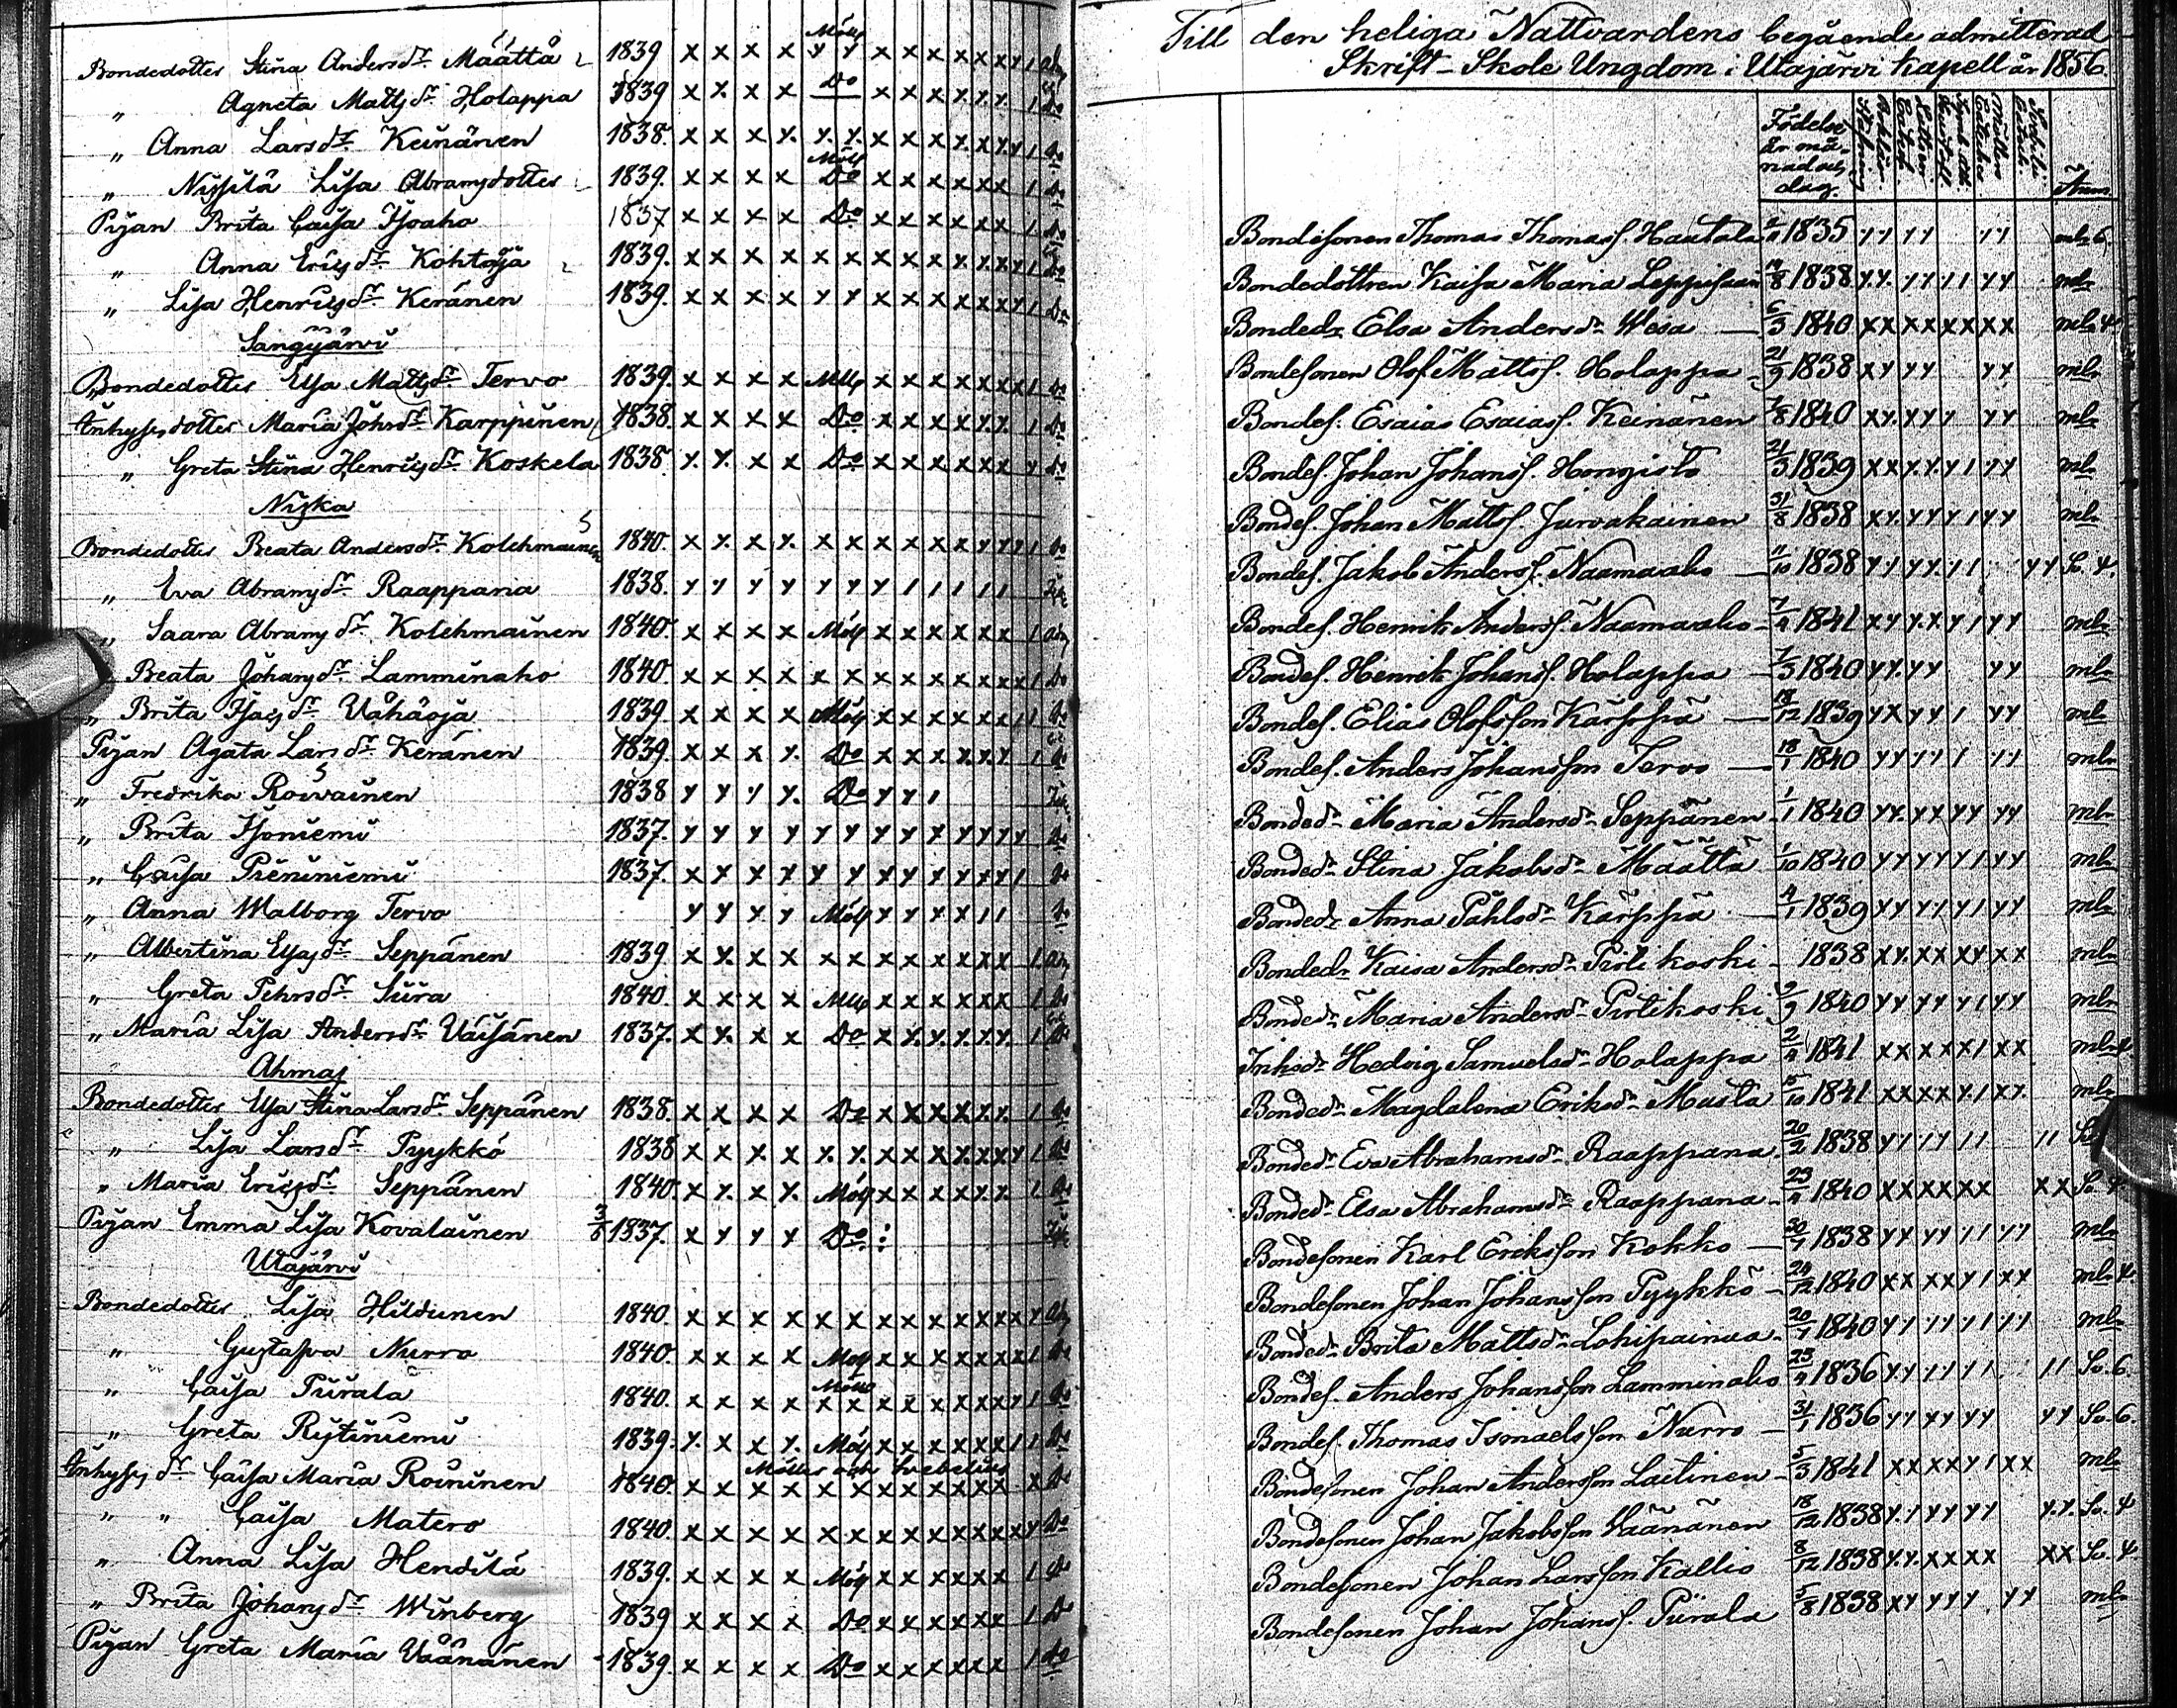 Bondedotter Stina Andersdr. Määttä 1839 x x x x y y x x x x x x y 1
" Agneta Mattsdr. Holappa 1839 x x. x x Do x x x x. x. x. 1 do
" Anna Larsdr. Keinänen 1838. x x x x. x. x. x x x x. x x. y 1 do
" Nissilä Lisa Abramsdotter 1839. x x x x Do x x x x x x 1 Do
Pigan Brita Caisa Isoaho 1837 x x x x Do x x x x x x 1 Do
" Anna Ericsdr. Kohtoja 1839. x x x x x x x x x x. x. x y 1 Do
" Lisa Henricsdr. Keränen 1839. x x x x y y x x x x x x y 1 Do
Sangijärvi
Bondedotter Elsa Mattsdr. Tervo 1839. x x x x x x x x x x x 1 Do
Inhyses dotter Maria Johsdr. Karppinen 1838. x x x x Do x x x x x. x. 1 Do
" Greta Stina Henricsdr. Koskela 1838 x. x. x x Do x x x x x x y do
Niska
Bondedotter Beata Andersdr. Kolehmainen 1840. x x. x x. x x x x x x y y y 1 do
" Eva Abramsdr. Raappana 1838. y y y y y y y 1 1 1 1 1
" Saara Abramsdr. Kolehmainen 1840. x x x x x x x x x x 1
" Beata Johansdr. Lamminaho 1840 x x x x x x x x x x x x x 1 Do
" Brita Isacsdr. Vähäoja 1839. x x x x x x x x x x 1 1 Do
Pigan Agata Larsdr. Keränen 1839. x x x x. Do x x x x. x. x. 1 do
" Fredrika Roivainen 1838 y y y y. Do y y 1
" Brita Isoniemi 1837. y y y y y y y y y y y y y Do
" Caisa Preniniemi 1837. x x x x y y x y y y x y 1 Do
" Anna Walborg Tervo y y y y y y y x 1 1 Do
" Albertina Elsasdr. Seppänen 1839 x x. x x x x x x x x x x 1
" Greta Pehrsdr. Siira 1840. x x x x x x x x x x 1 Do
" Maria Lisa Andersdr. Väisänen 1837. x x. x x Do x x. x. x. x. x. 1 Do
Ahmas
Bondedotter Elsa Stina Larsdr. Seppänen 1838. x x x x Do x x x x x. x. 1 Do
" Lisa Larsdr. Pyykkö 1838 x x x x x. x. x x x x. x x y 1 Do
" Maria Ericsdr. Seppänen 1840. x x. x x. x x x x x. x. 1 Do
Pigan Emma Lisa Kovalainen 3/8 1837. x y y y Do
Utajärvi
Bondedotter Lisa Hildunen 1840. x x x x x x x x x x x x x y
" Gustafva Nurro 1840. x x x x x x x x x x x 1 Do
" Caisa Piirala 1840. x x x x x x x x x x x x y 1 Do
" Greta Rytiniemi 1839. x. x x x. x x x x x x 1 1 Do
Inhyses dr Caisa Maria Roininen 1840. x x x x x x x x x x x x x Do
" " Caisa Matero 1840. x x x x x x x x x x x x x y Do
" Anna Lisa Hendilä 1839. x x x x x x x x x x 1 do
" Brita Johansdr. Winberg 1839 x x x x Do x x x x x x 1 Do
Pigan Greta Maria Väänänen 1839. x x x x Do x x x x x x 1 do
Till den heliga Nattvardens begående admitterad
Skrift-Skole Ungdom i Utajärvi kapell år 1856.
Födelse
år må-
nad och
dag.
Anm.
Bondesonen Thomas Thomass. Haatala 1835 y y y y y y mln 6
Bondedottren Kaisa Maria Leppisaari 1838 y. y. y y 1 1 y y mln
Bondedr Elsa Andersdr Wesa 6/3 1840 x x x x x x x x mln 4
Bondesonen Olof Mattss. Holappa 21/9 1838 x y y y y y mln
Bondes. Esaias Esaiass. Keinänen 7/8 1840 x y. y y y y y mln
Bondes. Johan Johanss. Hongisto 21/3 1839 x x y. y. y 1 y y mln
Bondes. Johan Mattss. Jurvakainen 31/8 1838 x y. y y y 1 y y mln
Bondes. Jakob Anderss. Naamaaho 11/10 1838 y y y y. y 1 y y So. 4.
Bondes. Henrik Anderss. Naamaaho 7/4 1841 x y y. x y 1 y y mln
Bondes. Henrik Johanss. Holappa 7/3 1840 y y. y y y y mln
Bondes. Elias Olofsson Kärppä 18/12 1839 y x y y 1 y y mln
Bondes. Anders Johansson Tervo 18/1 1840 y y y y 1 y y mln
Bondedr Maria Andersdr Seppänen 1/1 1840 y y. y x y y y y mln
Bondedr Stina Jakobsdr Määttä 1/10 1840 y y y y y 1 y y mln
Bondedr Anna Påhlsdr Kärppä 4/1 1839 y y y y y 1 y y mln
Bondedr Kaisa Andersdr Pirtikoski 1838 x x. x x x y x x mln
Bondedr Maria Andersdr Pirtikoski 9/9 1840 y y y y y 1 y y mln
Inhsdr Hedvig Samuelsdr Holappa 2/4 1841 x x x x x 1 x x mln 4
Bondedr Magdalena Eriksdr Musta 15/10 1841 x x x x y. 1 x y. mln
Bondedr Eva Abrahamsdr Raappana 20/2 1838 y 1 1 1 1 1 1 1
Bondedr Elsa Abrahamsdr Raappana 23/4 1840 x x x x x x x x So. 4
Bondesonen Karl Eriksson Kokko 30/7 1838 y y y y 1 1 y y mln
Bondesonen Johan Johansson Pyykkö 24/12 1840 x x x x y 1 x x mln 4
Bondedr Brita Mattsdr Lohipainaa 20/7 1840 y y y y y 1 y y mln
Bondes. Anders Johansson Lamminaho 23/4 1836 y y y 1 1 1 1 1 So. 6.
Bondes. Thomas Ismaelsson Nurro 31/1 1836 y y x y y y y y So. 6.
Bondesonen Johan Andersson Laitinen 5/3 1841 x x x x y 1 x x mln
Bondesonen Johan Jakobsson Väänänen 18/12 1838 y. y y y y y y. y. So. 4
Bondesonen Johan Larsson Kallio 8/12 1838 y. y. x x x x x x So. 4.
Bondesonen Johan Johanss. Piirala 5/8 1838 x y y y y y y mln